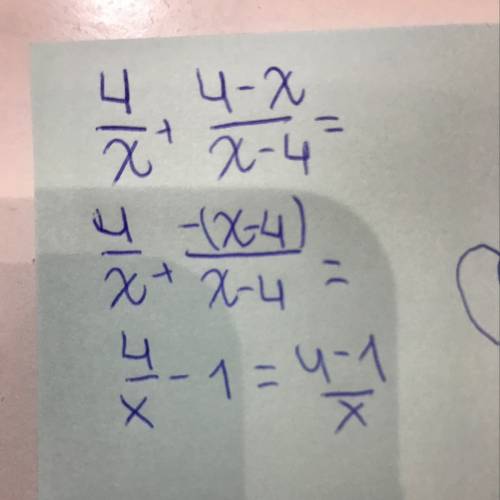 4/x + (4-x)/(x-4) =
4/x + -(x-4)/(x-4) =
4/x - 1 = (4-1)/x